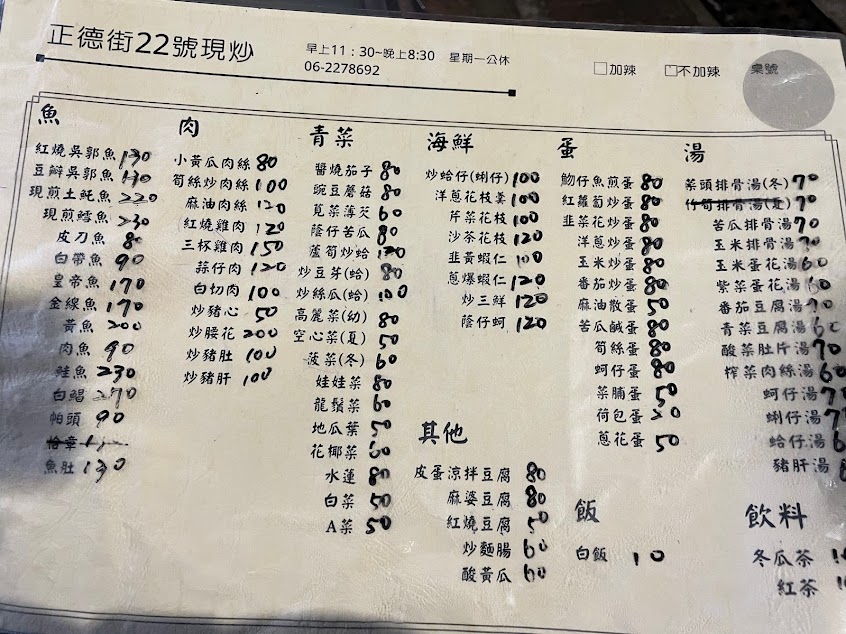 正德街22號現炒
早上11：30~晚上8:30　星期一公休
06-2278692
□加辣　□不加辣　桌號
魚
紅燒吳郭魚 130
豆瓣吳郭魚 130
現煎土魠魚 220
現煎鱈魚 230
皮刀魚 80
白帶魚 90
皇帝魚 170
金線魚 170
黃魚 200
肉魚 90
鮭魚 230
白鯧 270
帕頭 90
魚肚 130
肉
小黃瓜肉絲 80
筍絲炒肉絲 100
麻油肉絲 120
紅燒雞肉 120
三杯雞肉 150
蒜仔肉 120
白切肉 100
炒豬心 50
炒腰花 200
炒豬肚 100
炒豬肝 100
青菜
醬燒茄子 80
豌豆蘑菇 80
莧菜薄芡 60
蔭仔苦瓜 80
蘆筍炒蛤 120
炒豆芽(蛤) 80
炒絲瓜(蛤) 100
高麗菜(幼) 80
空心菜(夏) 50
菠菜(冬) 60
娃娃菜 80
龍鬚菜 60
地瓜葉 50
花椰菜 60
水蓮 80
白菜 50
A菜 50
海鮮
炒蛤仔(蜊仔) 100
洋蔥花枝羹 100
芹菜花枝 100
沙茶花枝 120
韭黃蝦仁 100
蔥爆蝦仁 120
炒三鮮 120
蔭仔蚵 120
其他
皮蛋涼拌豆腐 80
麻婆豆腐 80
紅燒豆腐 50
炒麵腸 60
酸黃瓜 60
蛋
魩仔魚煎蛋 80
紅蘿蔔炒蛋 80
韭菜花炒蛋 80
洋蔥炒蛋 80
玉米炒蛋 80
番茄炒蛋 80
麻油散蛋 50
苦瓜鹹蛋 80
筍絲蛋 80
蚵仔蛋 80
菜脯蛋 50
荷包蛋 20
蔥花蛋 50
飯
白飯 10
湯
菜頭排骨湯(冬) 70
竹筍排骨湯(夏) 70
苦瓜排骨湯 70
玉米排骨湯 70
玉米蛋花湯 60
紫菜蛋花湯 60
番茄豆腐湯 70
青菜豆腐湯 60
酸菜肚片湯 70
榨菜肉絲湯 60
蚵仔湯
蜊仔湯
蛤仔湯
豬肝湯
飲料
冬瓜茶
紅茶